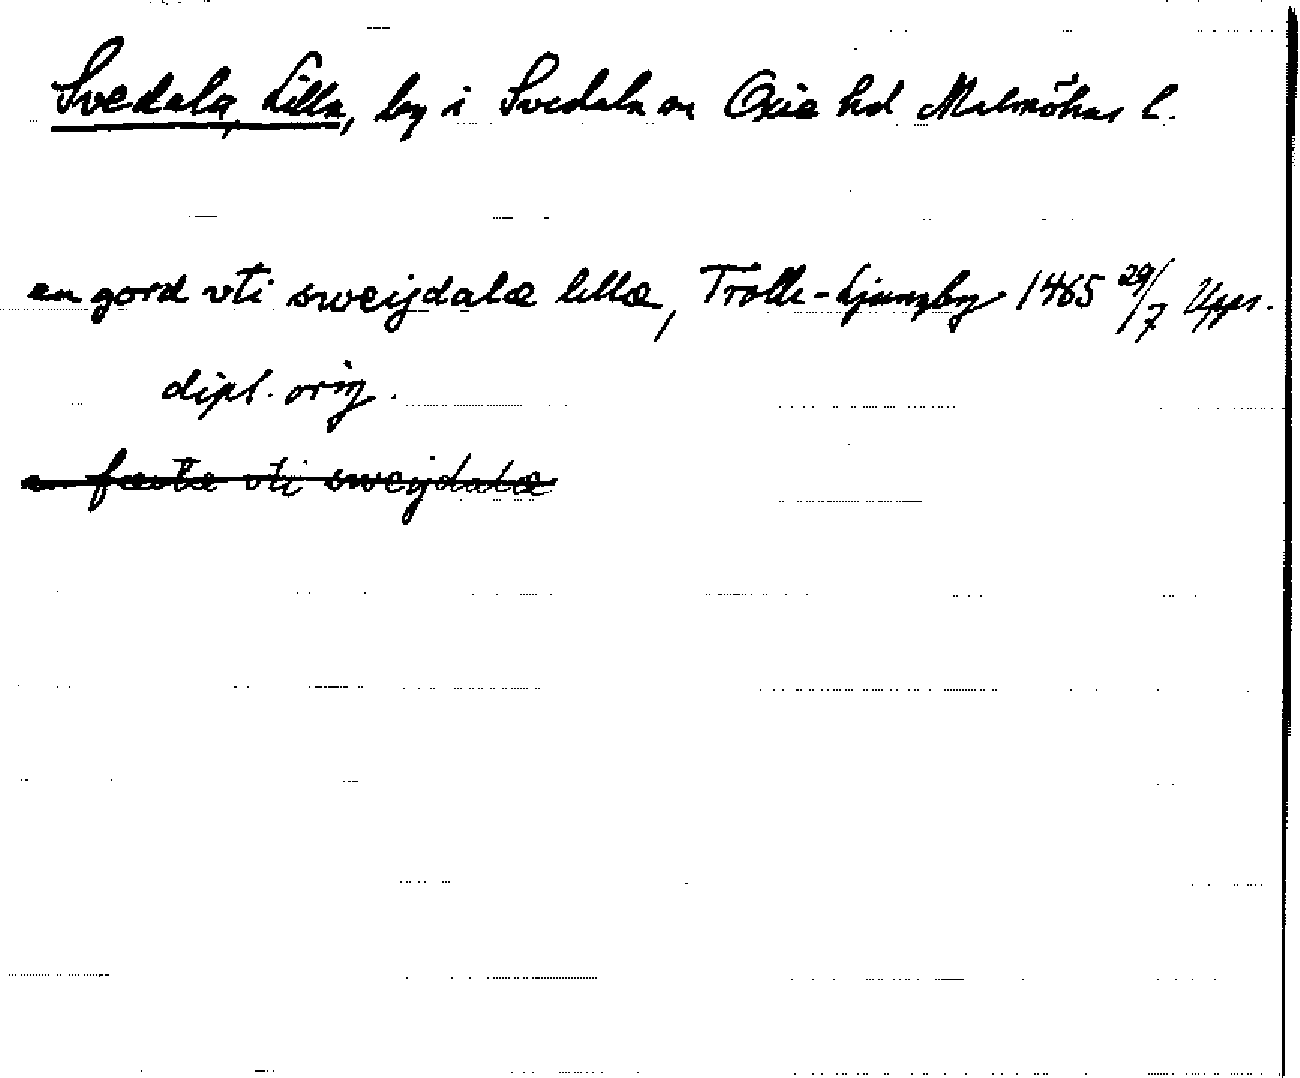 Svedala, Lilla, by i Svedala sn Oxie hd Malmöhus l.
en gord vti sweijdalæ lillæ, Trolle-Ljungby 1465 29/7 Upps.
dipl. orig.
en fæstæ vti sweijdalæ